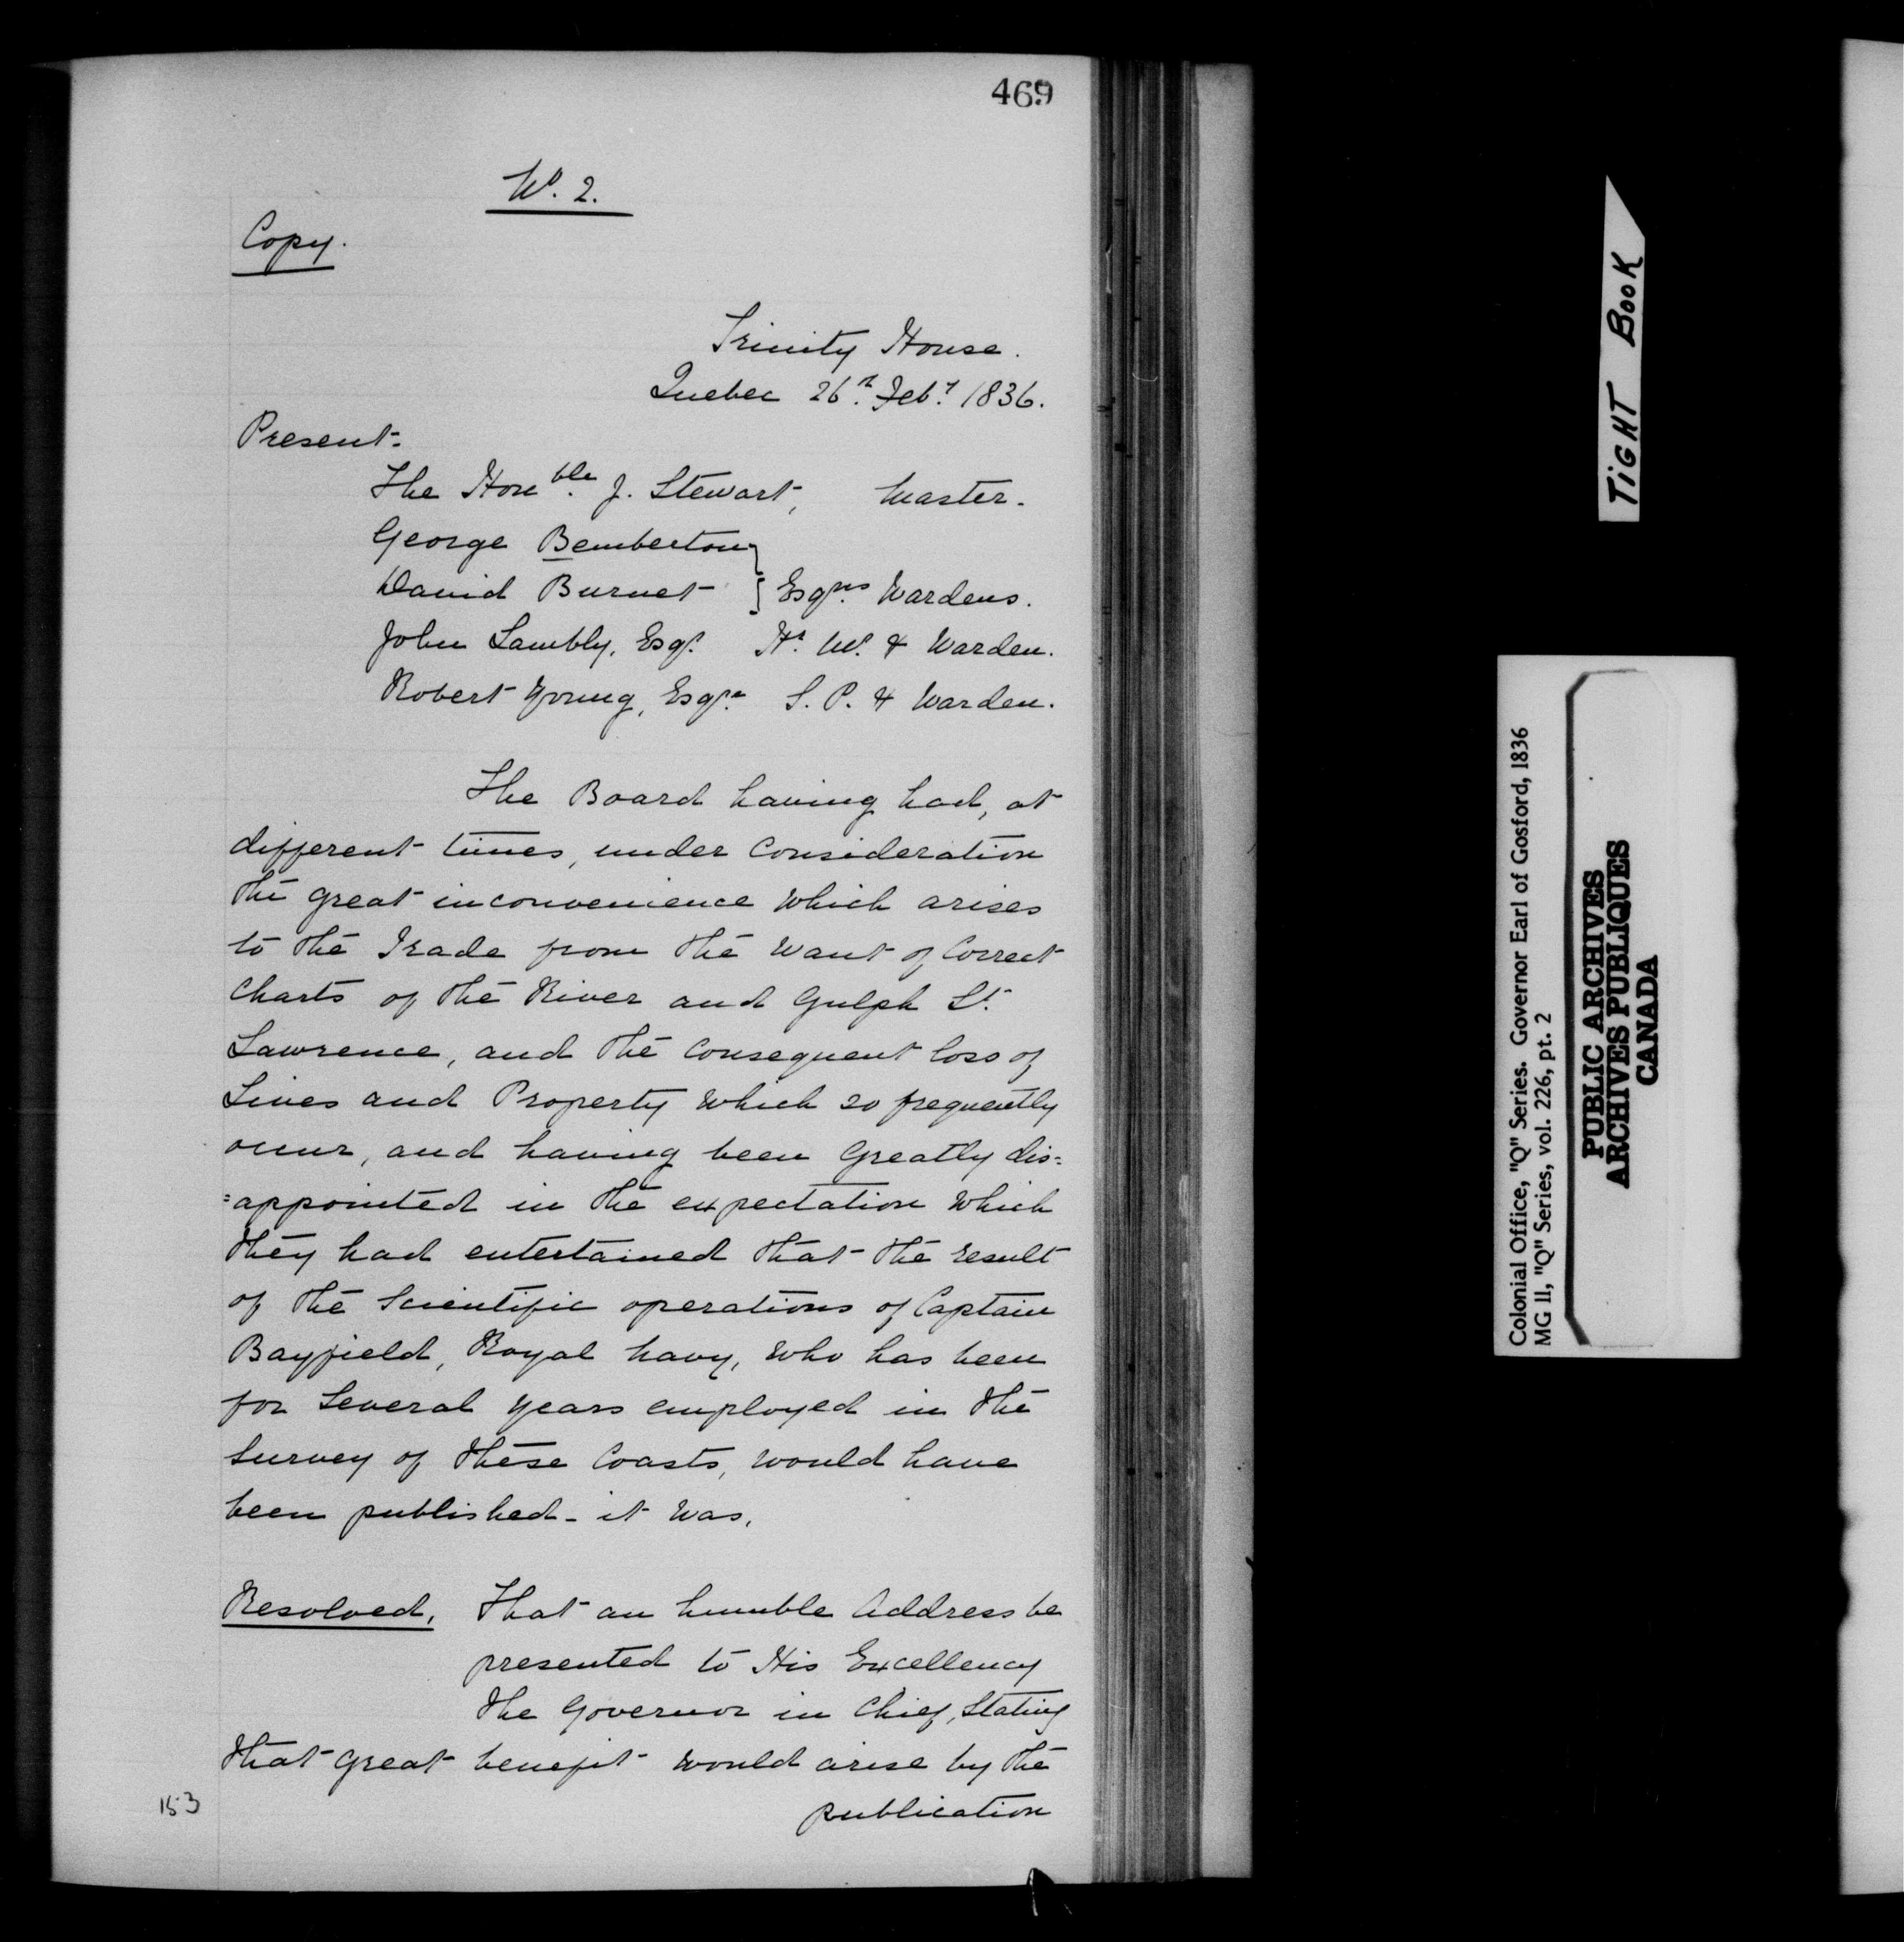 469
No. 2.
Copy.
Trinity House.
Quebec 26th Feby 1836.
Present.
The Honble. J. Stewart, Master.
George Bemberton
David Burnet } Esqrs Wardens.
John Lambly, Esqr. Hr. Mr. & Warden.
Robert Young, Esqre. S. P. & Warden.
The Board having had, at
different times, under Consideration
the great inconvenience which arises
to the Trade from the want of Correct
Charts of the River and Gulph St.
Lawrence, and the consequent loss of
Lives and Property which so frequently
occur, and having been Greatly dis=
=appointed in the expectation which
they had entertained that the result
of the Scientific operations of Captain
Bayfield, Royal Navy, who has been
for several years employed in the
Survey of these Coasts, would have
been published - it was,
Resolved, That an humble Address be
presented to His Excellency
the Governor in Chief, Stating
that great benefit would arise by the
publication
153
TIGHT BOOK
Colonial Office, "Q" Series. Governor Earl of Gosford, 1836
MG 11, "Q" Series, vol. 226, pt. 2
PUBLIC ARCHIVES
ARCHIVES PUBLIQUES
CANADA